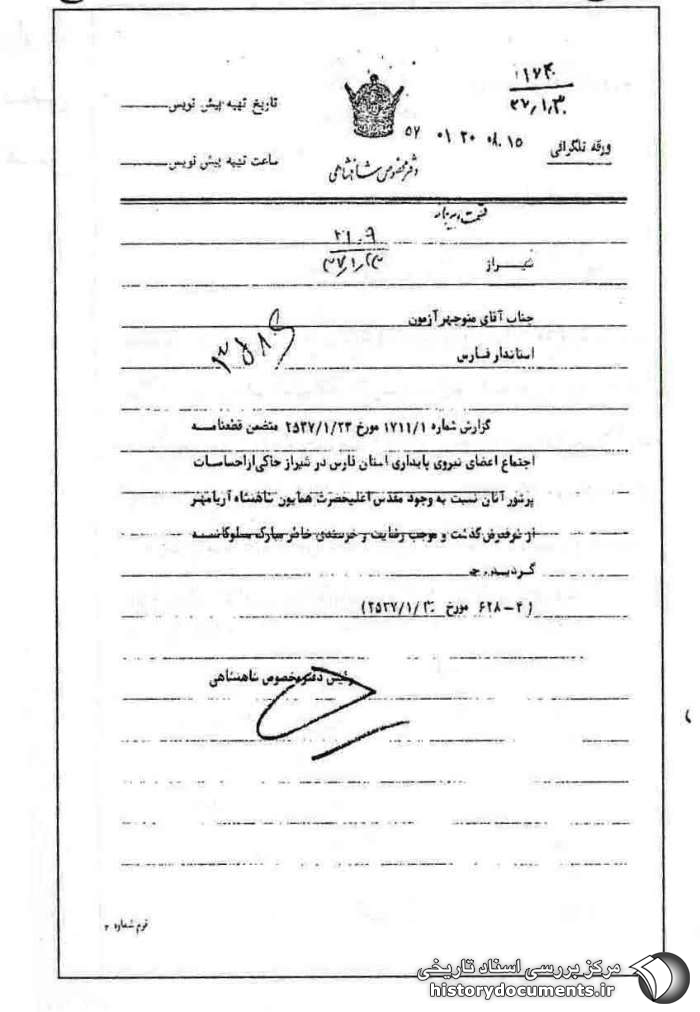 ۱۷۴۰
۳۷/۱/۳۰
تاریخ تهیه پیش نویس
۵۷ ۰۱ ۲۰ ۰۸.۱۵
ورقه تلگرافی
ساعت تهیه پیش نویس
دفتر مخصوص شاهنشاهی
شیراز
جناب آقای منوچهر آزمون
استاندار فارس
گزارش شماره ۱۷۱۱/۱ مورخ ۲۵۳۷/۱/۲۳ متضمن قطعنامه
اجتماع اعضای نیروی پایداری استان فارس در شیراز حاکی از احساسات
پرشور آنان نسبت به وجود مقدس اعلیحضرت همایون شاهنشاه آریامهر
از شرفعرض گذشت و موجب رضایت و خرسندی خاطر مبارک ملوکانه
گردید.
(۴-۶۲۸ مورخ ۲۵۳۷/۱/۳۰)
رئیس دفتر مخصوص شاهنشاهی
فرم شماره ۲
مرکز بررسی اسناد تاریخی
historydocuments.ir